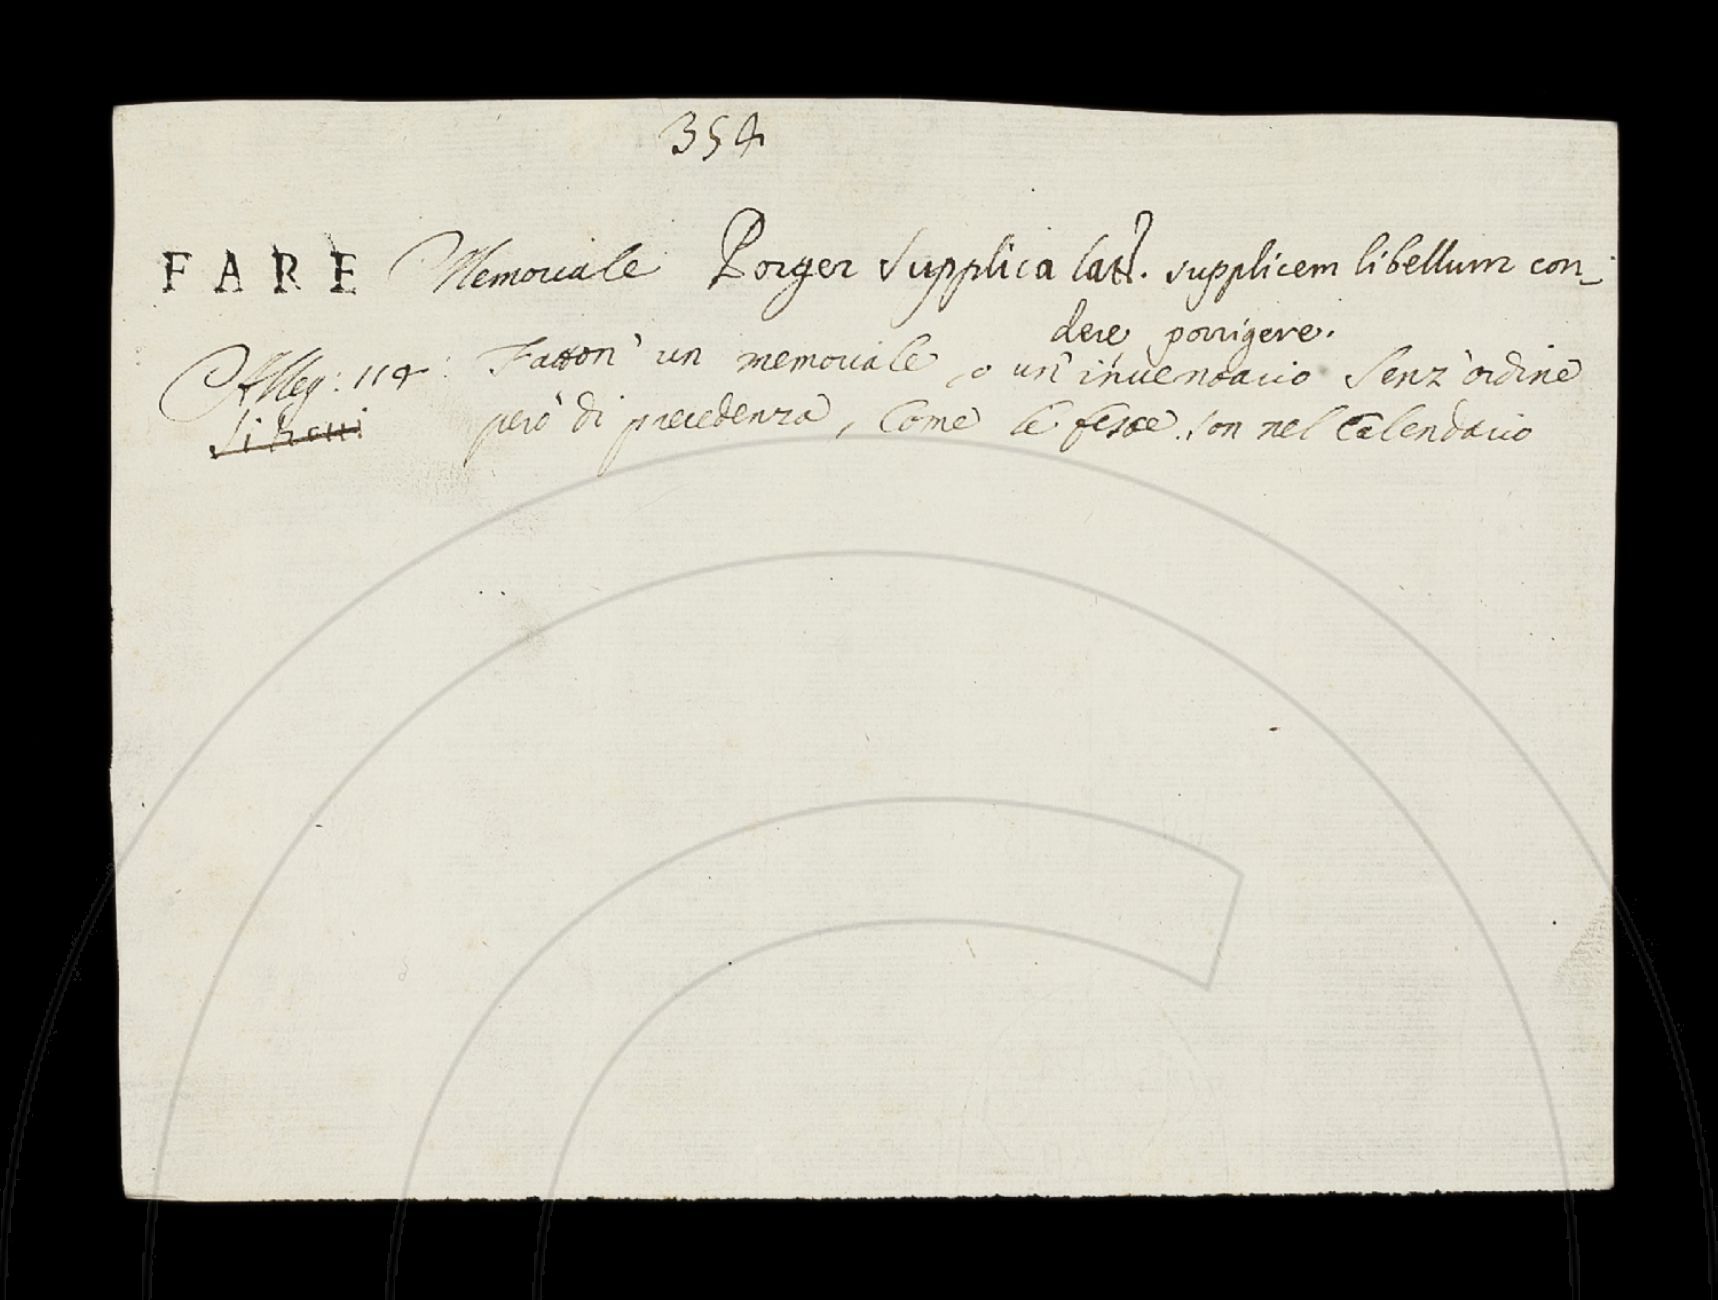 354
FARE Memoriale Porger Supplica latt. supplicem libellum con-
dere, porrigere.
Alleg: 114: Fatton' un memoriale, o un' inventario Senz' ordine
però di precedenza, Come le feste son nel Calendario